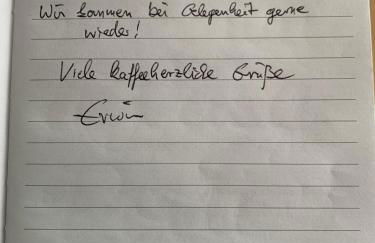 Wir kommen bei Gelegenheit gerne
wieder!
Viele kaffeeherzliche Grüße
Erwin